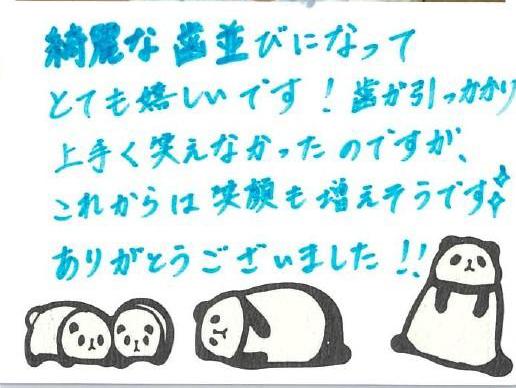 綺麗な歯並びになって
とても嬉しいです！歯が引っかかり
上手く笑えなかったのですが、
これからは笑顔も増えそうです
ありがとうございました!!